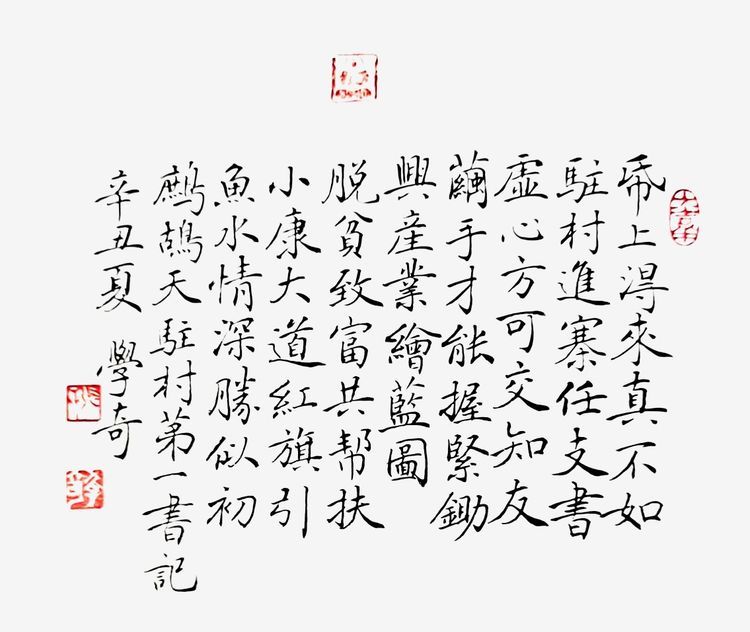 帋上得來真不如
駐村進寨任支書
虛心方可交知友
繭手才能握緊鋤
興産業繪藍圖
脱貧致富共帮扶
小康大道紅旗引
魚水情深勝似初
鷓鴣天駐村第一書記
辛丑夏 學奇